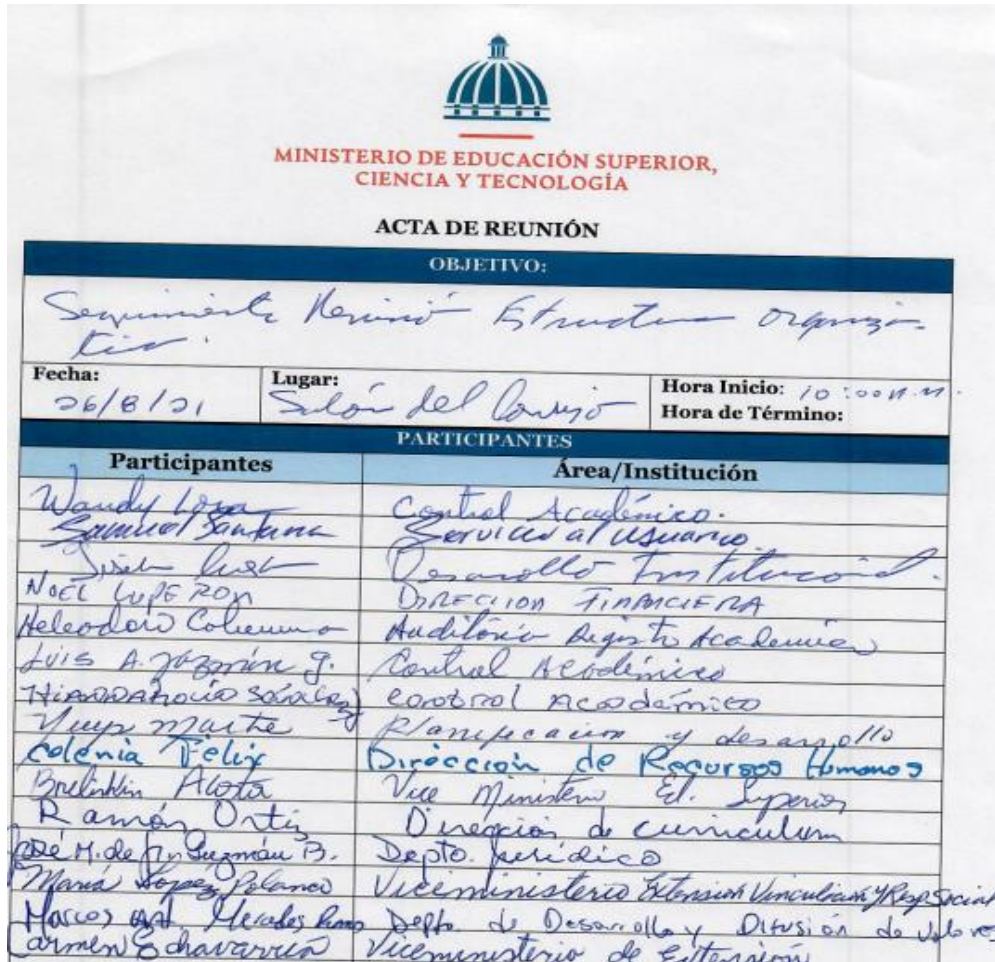 MINISTERIO DE EDUCACIÓN SUPERIOR,
CIENCIA Y TECNOLOGÍA
ACTA DE REUNIÓN
OBJETIVO:
Seguimiento Reunió Estructura organiza-
tiva.
Fecha: Lugar: Hora Inicio: 10:00 A.M.
26/8/21 Salón del Consejo Hora de Término:
PARTICIPANTES
Participantes Área/Institución
Wandy Control Académico.
Samuel Santana Servicio al Usuario
Desarrollo Institucional.
NOEL LUPERON DIRECCION FINANCIERA
Heleodoro Auditoria Registro Academico
Luis A. g. Control Académico
Control Académico
Marte Planificación y desarrollo
Colenia Felix Dirección de Recursos Humanos
Vice Ministerio Ed. Superior
Ramón Ortiz Dirección de curriculum
José M. de Guzmán B. Depto. jurídico
María López Polanco Viceministerio Extensión Vinculación y Resp Social
Marcos Mercedes Depto de Desarrollo y Difusión de Valores
Carmen Echavarría Viceministerio de Extensión